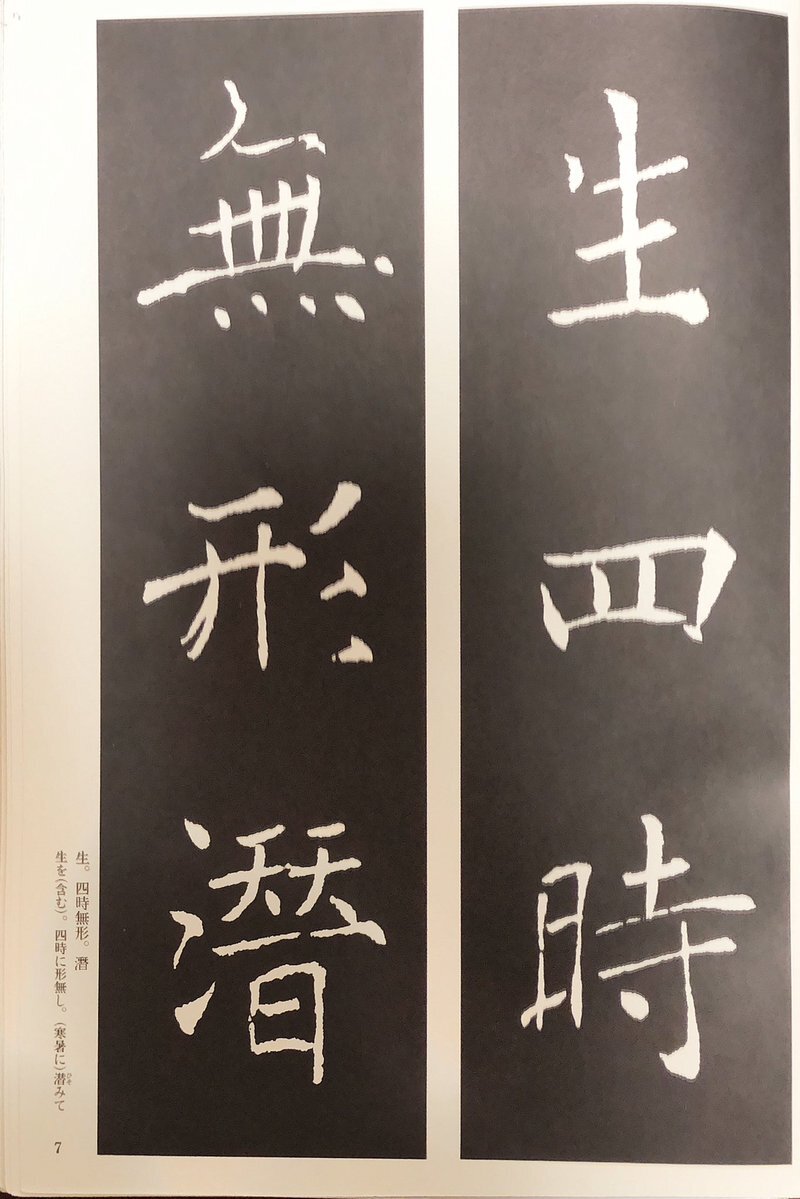 生四時
無形潛
生。四時無形。潛
生を(含む)。四時に形無し。(寒暑に)潜みて
ひそ
7